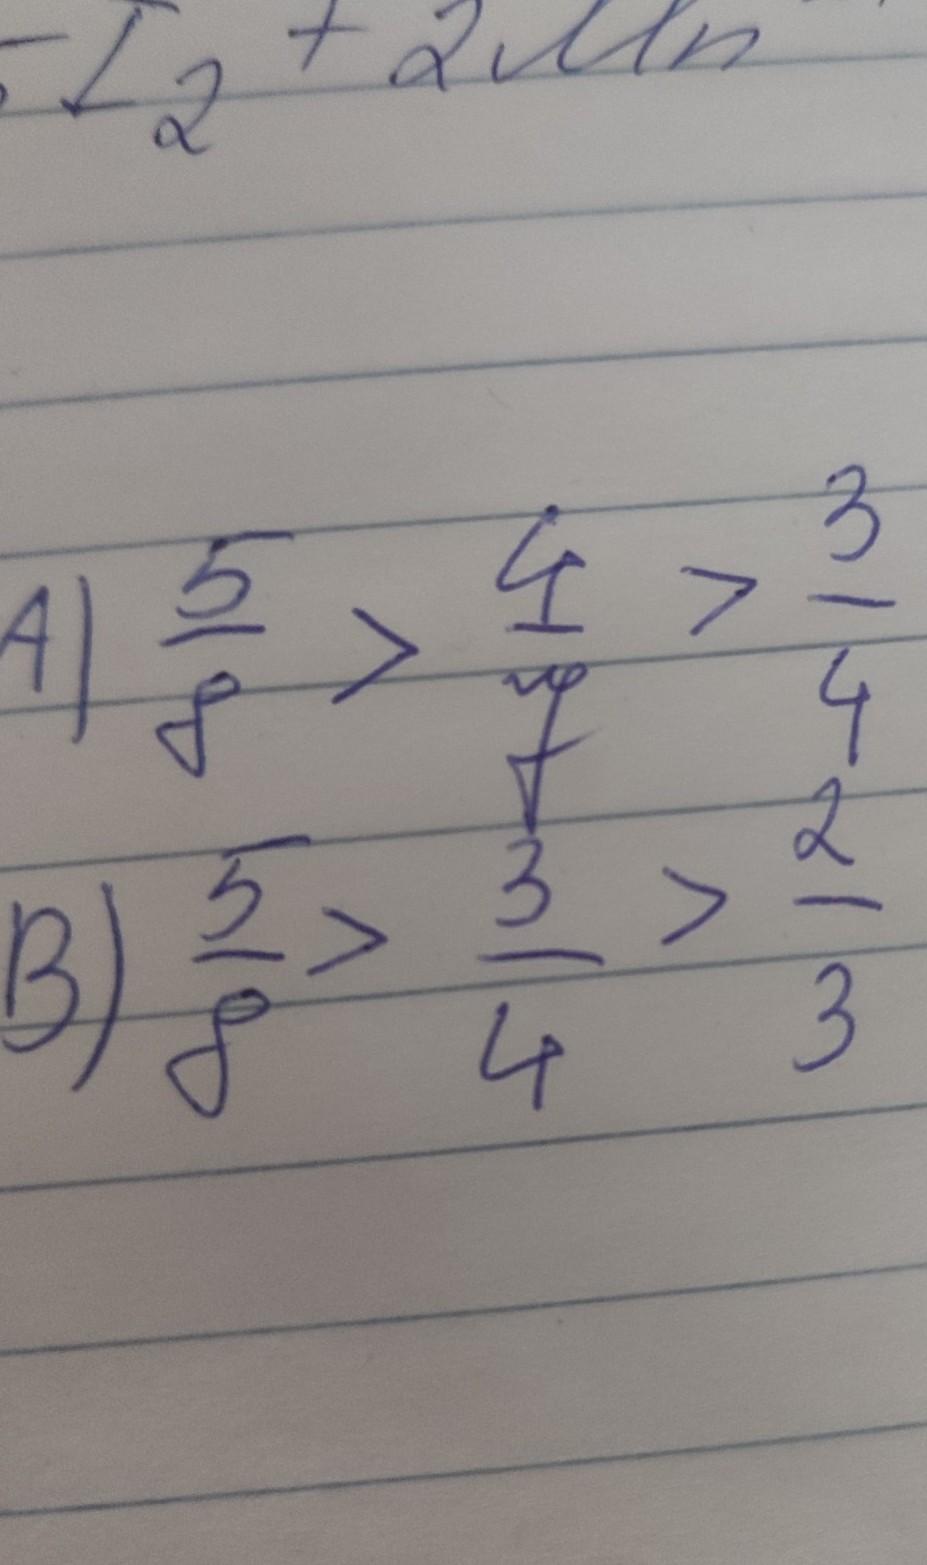 I₂ + 2Mn
A) 5/8 > 4/7 > 3/4
B) 5/8 > 3/4 > 2/3